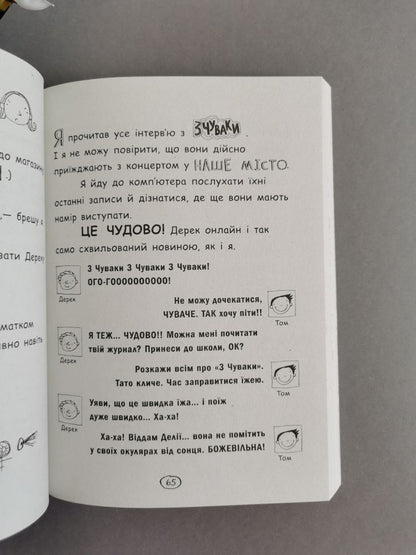 до магазину
.)
— брешу я
вати Дереку
матком
вно навіть
Я прочитав усе інтерв'ю з 3 ЧУВАКИ.
І я не можу повірити, що вони дійсно
приїжджають з концертом у НАШЕ МІСТО.
Я йду до комп'ютера послухати їхні
останні записи й дізнатися, де ще вони мають
намір виступати.
ЦЕ ЧУДОВО! Дерек онлайн і так
само схвильований новиною, як і я.
3 Чуваки 3 Чуваки 3 Чуваки!
ОГО-ГОООООООООО!
Дерек
Не можу дочекатися,
ЧУВАЧЕ. ТАК хочу піти!!
Том
Я ТЕЖ... ЧУДОВО!! Можна мені почитати
твій журнал? Принеси до школи, ОК?
Дерек
Розкажи всім про «3 Чуваки».
Тато кличе. Час заправитися їжею.
Том
Уяви, що це швидка їжа... і поїж
дуже швидко... Ха-ха!
Дерек
Ха-ха! Віддам Делії... вона не помітить
у своїх окулярах від сонця. БОЖЕВІЛЬНА!
Том
65